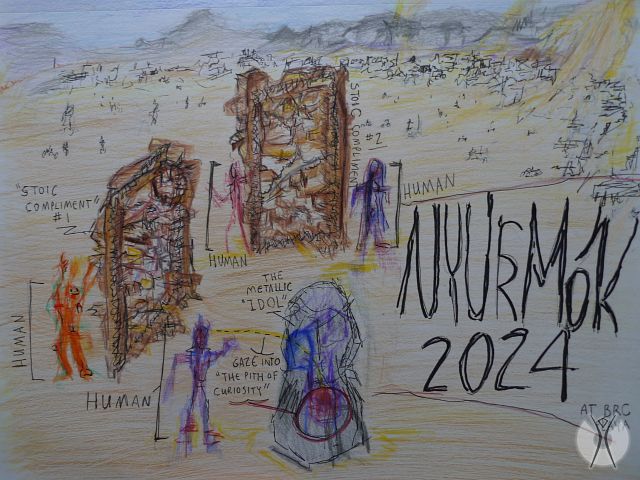 "STOIC
COMPLIMENT"
#1
STOIC COMPLIMENT
#2
HUMAN
HUMAN
HUMAN
HUMAN
THE
METALLIC
"IDOL"
GAZE INTO
"THE PITH OF
CURIOSITY"
NYURMOK
2024
AT BRC